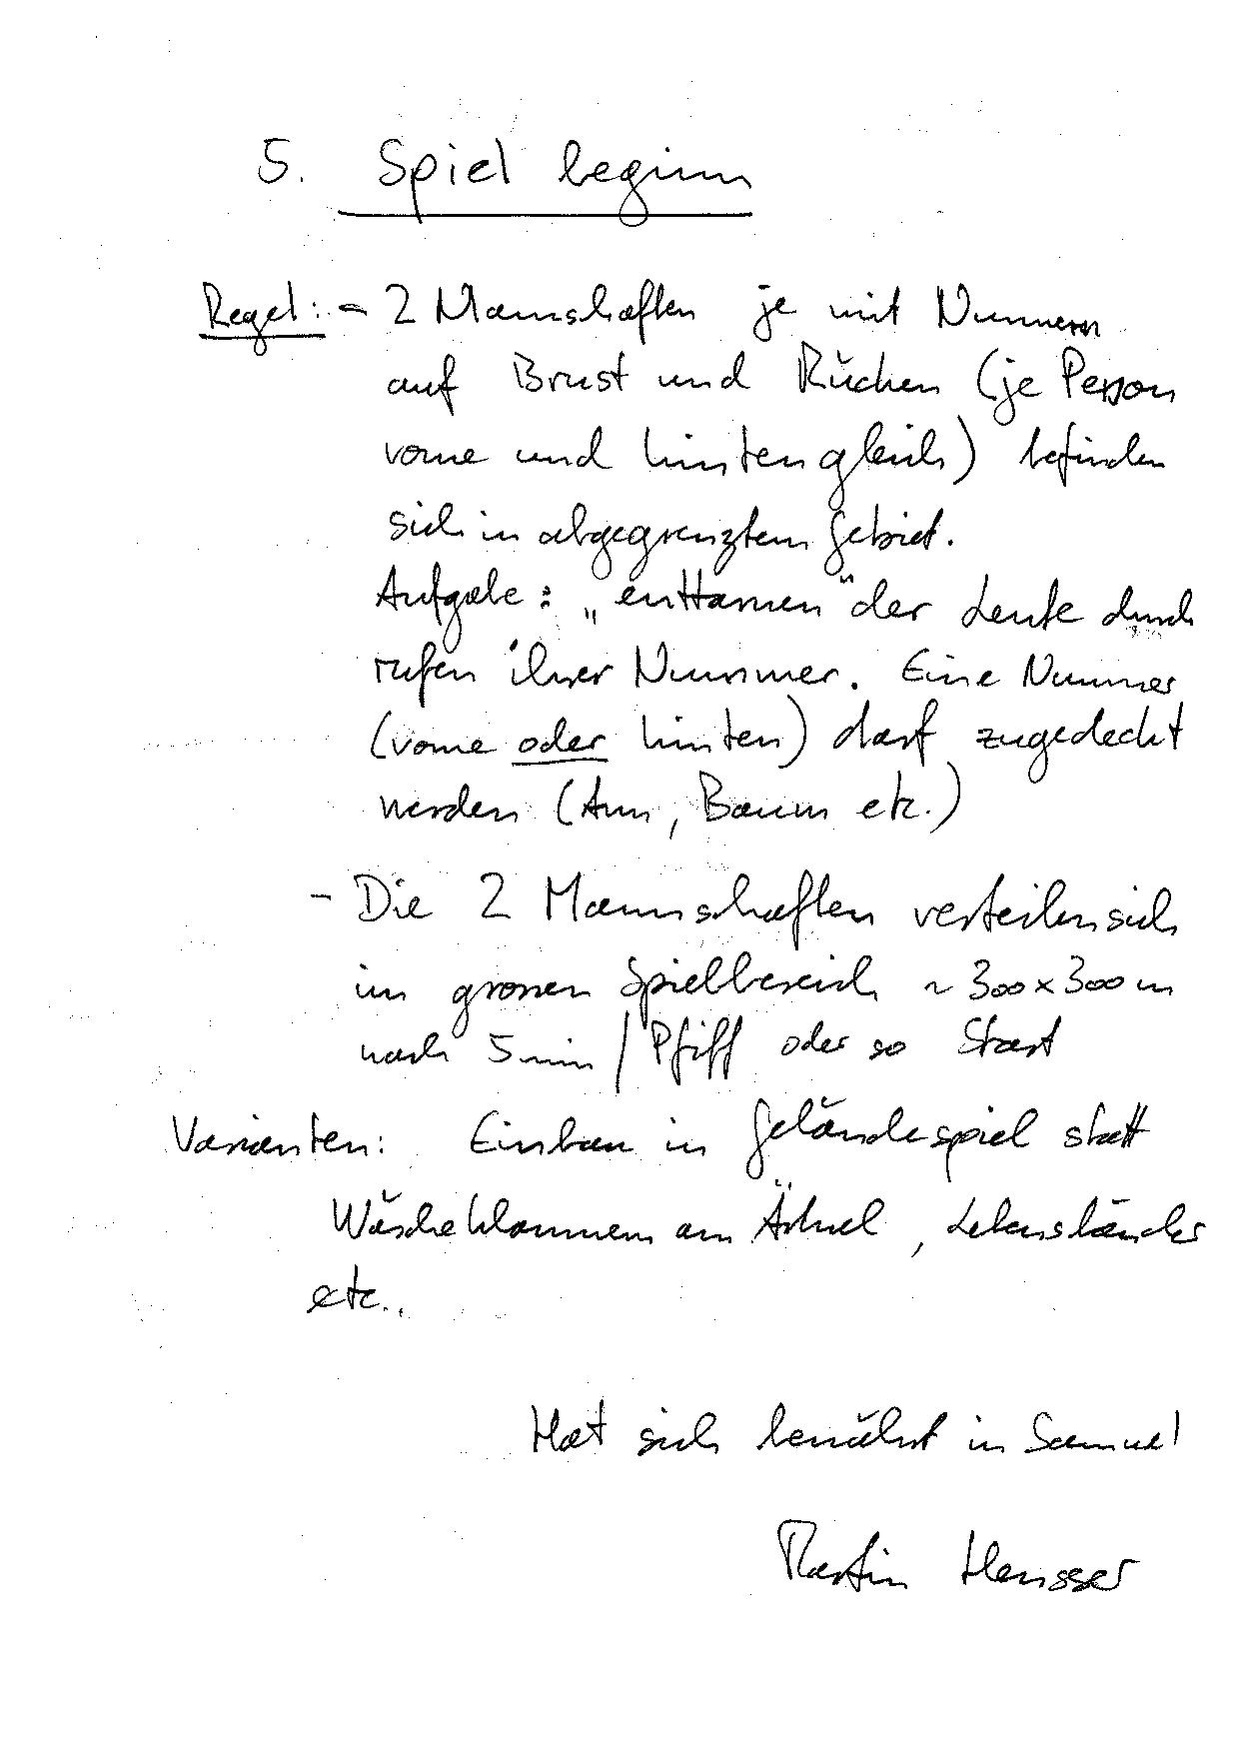 5. Spiel beginn
Regel: - 2 Mannschaften je mit Nummern
auf Brust und Rücken (je Person
vorne und hinten gleich) befinden
sich in abgegrenztem Gebiet.
Aufgabe: „enttarnen" der Leute durch
rufen ihrer Nummer. Eine Nummer
(vorne oder hinten) darf zugedeckt
werden (Arm, Baum etc.)
- Die 2 Mannschaften verteilen sich
im grossen Spielbereich ~ 300 x 300 m
nach 5 min / Pfiff oder so Start
Varianten: Einbau in Geländespiel statt
Wäscheklammern am Ärmel, Lebensbänder
etc..
Hat sich bewährt in Samuel
Martin Heusser